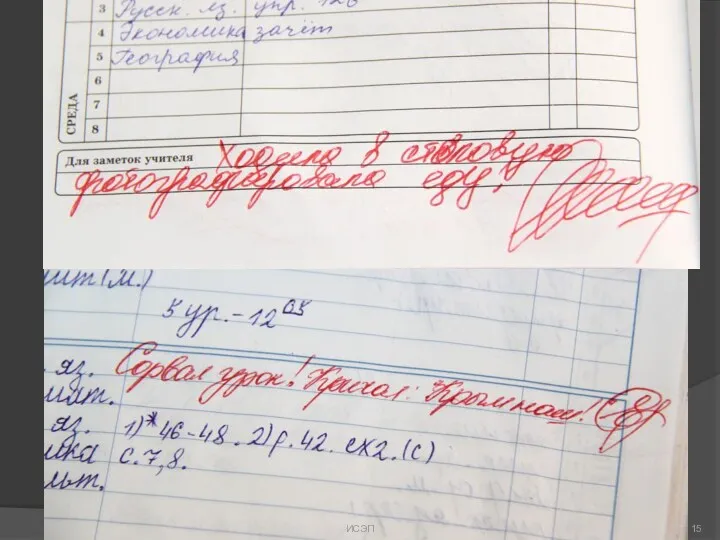 3 Русск. яз. упр. 126
4 Экономика зачёт
5 География
6
7
8
СРЕДА
Для заметок учителя Ходила в столовую
фотографировала еду!
ит (м.)
5 ур. - 12 05
яз. Сорвал урок! Кричал: Крым наш!
мат.
яз. 1)*46-48. 2)р.42. сх2.(с)
ика с.7,8.
льт.
ИСЭП
15